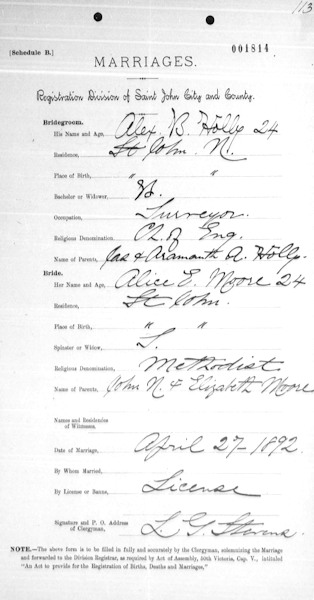 113
[Schedule B.]
001814
MARRIAGES.
Registration Division of Saint John City and County.
Bridegroom.
His Name and Age, Alex. B. Holly 24
Residence, St John. N.
Place of Birth, " "
Bachelor or Widower, B.
Occupation, Surveyor.
Religious Denomination, Ch. of Eng.
Name of Parents, Jas & Aramanth A. Holly.
Bride.
Her Name and Age, Alice E. Moore 24
Residence, St John.
Place of Birth, " "
Spinster or Widow, S.
Religious Denomination, Methodist
Name of Parents, John N. & Elizabeth Moore
Names and Residences
of Witnesses.
Date of Marriage, April 27-1892
By Whom Married,
By License or Banns, License
Signature and P. O. Address
of Clergyman, L. G. Stevens
NOTE.—The above form is to be filled in fully and accurately by the Clergyman, solemnizing the Marriage
and forwarded to the Division Registrar, as required by Act of Assembly, 50th Victoria, Cap. V., intituled
"An Act to provide for the Registration of Births, Deaths and Marriages."